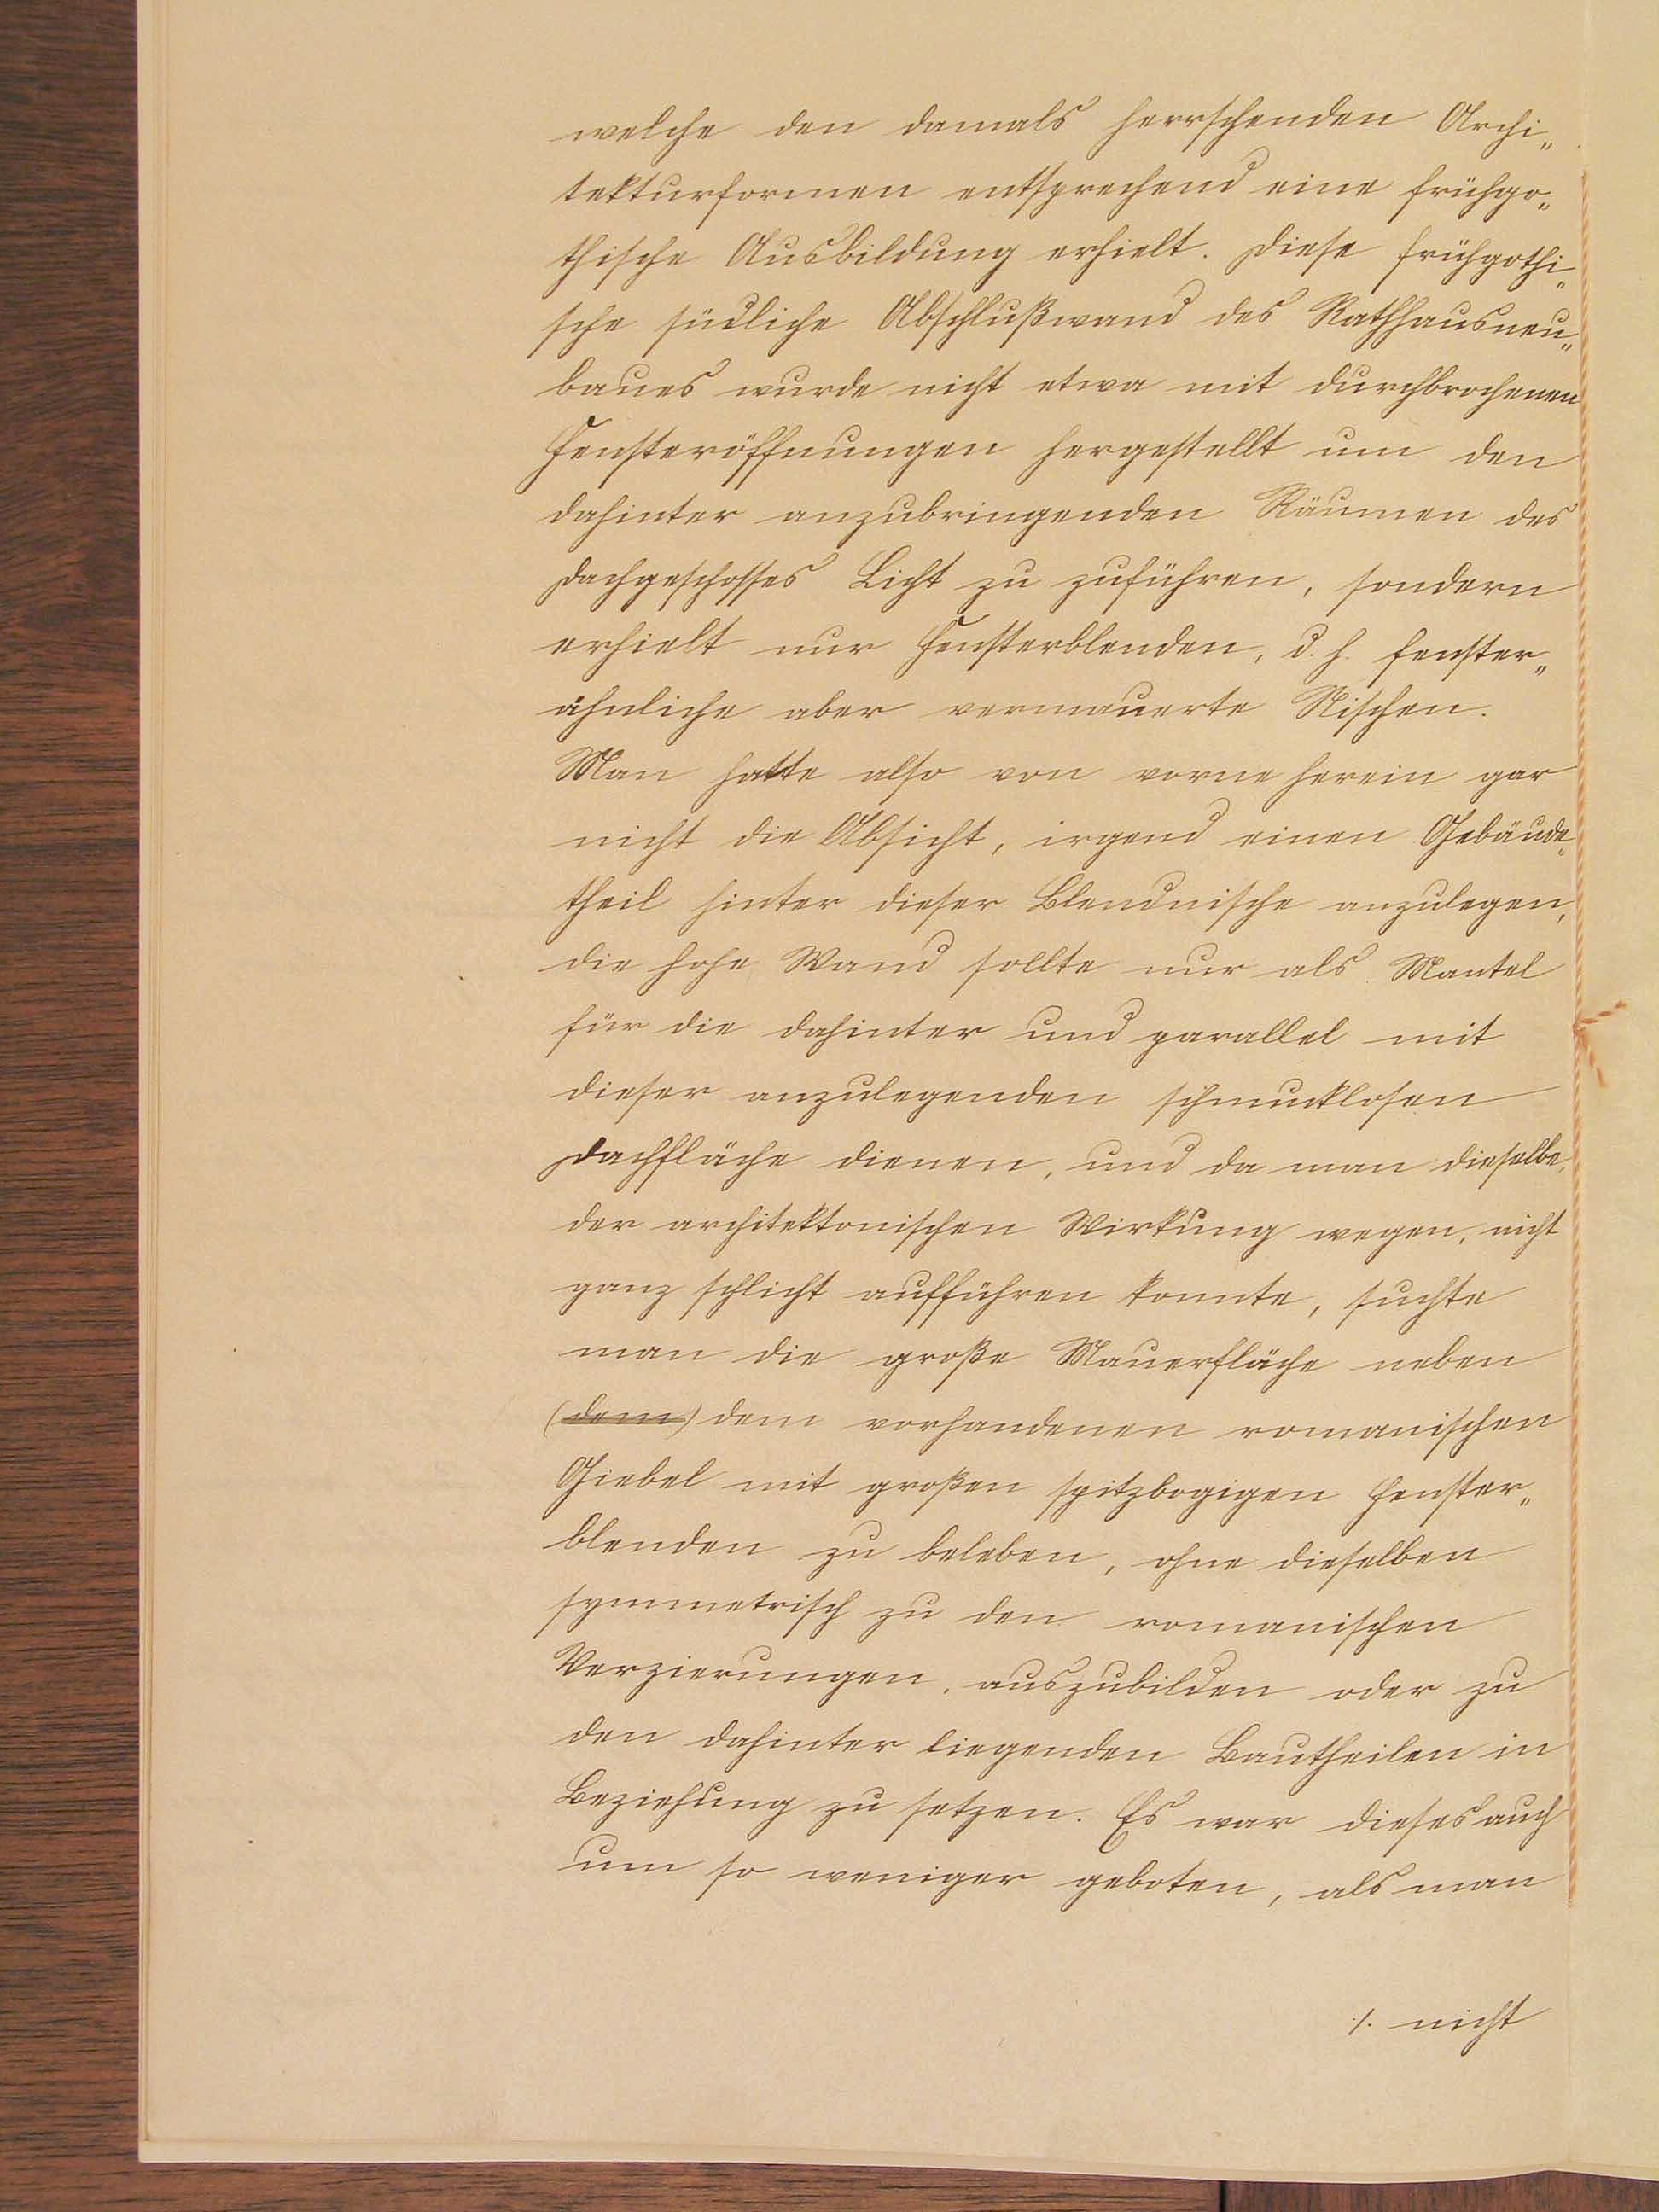 welche den damals herrschenden Archi„
tekturformen entsprechend eine frühgo„
thische Ausbildung erhielt. Diese frühgothi„
sche südliche Abschlußwand des Rathhausneu„
baues wurde nicht etwa mit durchbrochenen
Fensteröffnungen hergestellt um den
dahinter anzubringenden Räumen des
Dachgeschosses Licht zu zuführen, sondern
erhielt nur Fensterblenden, d. h. fenster„
ähnliche aber vermauerte Nischen.
Man hatte also von vorne herein gar
nicht die Absicht, irgend einen Gebäude„
theil hinter dieser Blendnische anzulegen,
die hohe Wand sollte nur als Mantel
für die dahinter und parallel mit
dieser anzulegenden schmucklosen
Dachfläche dienen, und da man dieselbe,
der architektonischen Wirkung wegen, nicht
ganz schlicht aufführen konnte, suchte
man die große Mauerfläche neben
(dem) dem vorhandenen romanischen
Giebel mit großen spitzbogigen Fenster„
blenden zu beleben, ohne dieselben
symmetrisch zu den romanischen
Verzierungen, auszubilden oder zu
den dahinter liegenden Bautheilen in
Beziehung zu setzen. Es war dieses auch
um so weniger geboten, als man
./. nicht